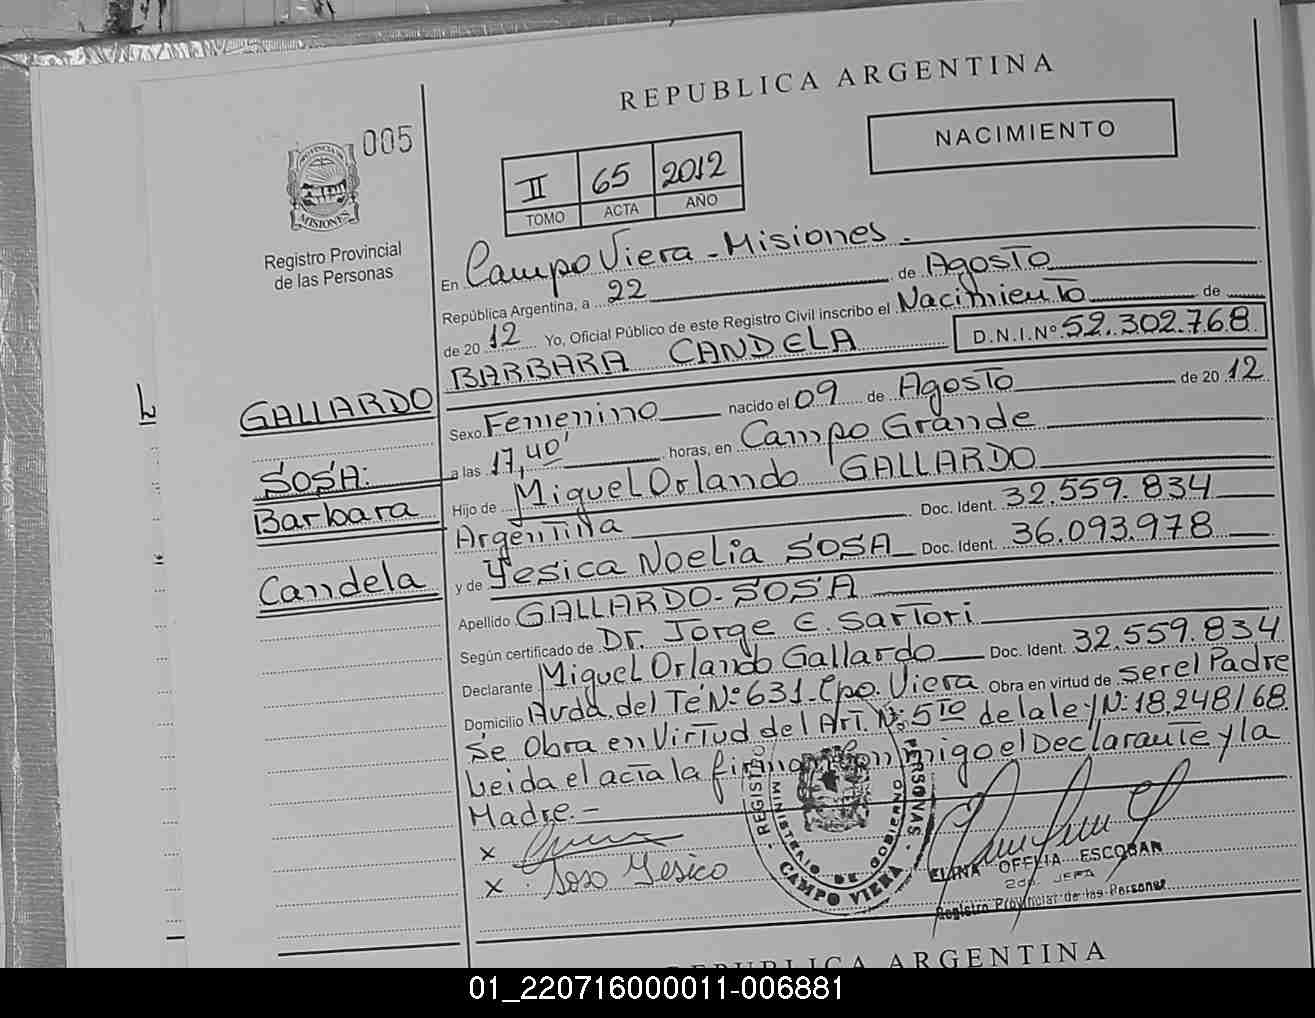 REPUBLICA ARGENTINA
005
NACIMIENTO
II 65 2012
TOMO ACTA AÑO
MISIONES
Registro Provincial
de las Personas
En Campo Viera - Misiones.
República Argentina, a 22 de Agosto
de 20 12 Yo, Oficial Público de este Registro Civil inscribo el Nacimiento de
BARBARA CANDELA D.N.I.Nº 52.302.768
GALLARDO
Sexo Femenino nacido el 09 de Agosto de 20 12
SOSA:
a las 17,40' horas, en Campo Grande
Barbara
Hijo de Miguel Orlando GALLARDO
Argentina Doc. Ident. 32.559.834
Candela
y de Yesica Noelia SOSA Doc. Ident. 36.093.978
Apellido GALLARDO-SOSA
Según certificado de Dr. Jorge E Sartori
Declarante Miguel Orlando Gallardo Doc. Ident. 32.559.834
Domicilio Avda. del Té Nº 631-Cpo. Viera Obra en virtud de Ser el Padre
Se Obra en Virtud del Art. Nº 5to de la ley Nº 18,248/68
Leida el acta la firman Conmigo el Declarante y la
Madre.-
x
x Soso Yesico
REGISTRO PERSONAS
MINISTERIO DE GOBIERNO
CAMPO VIERA
ELINA OFELIA ESCOBAR
2da. JEFA
Registro Provincial de las Personas
REPUBLICA ARGENTINA
01_220716000011-006881